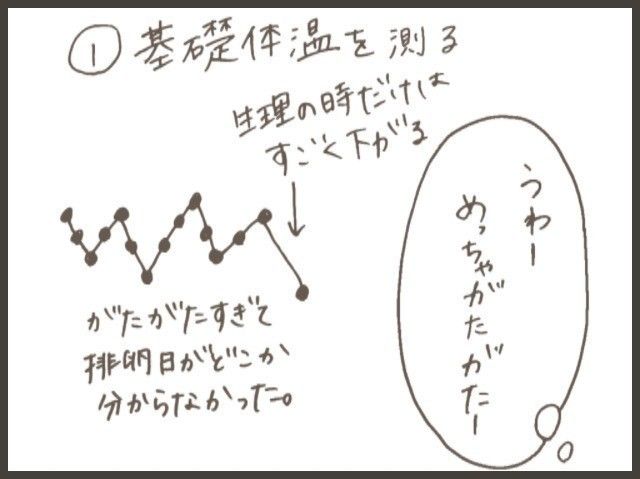 ① 基礎体温を測る
生理の時だけは
すごく下がる
うわー
めっちゃがたがたー
がたがたすぎて
排卵日がどこか
分からなかった。